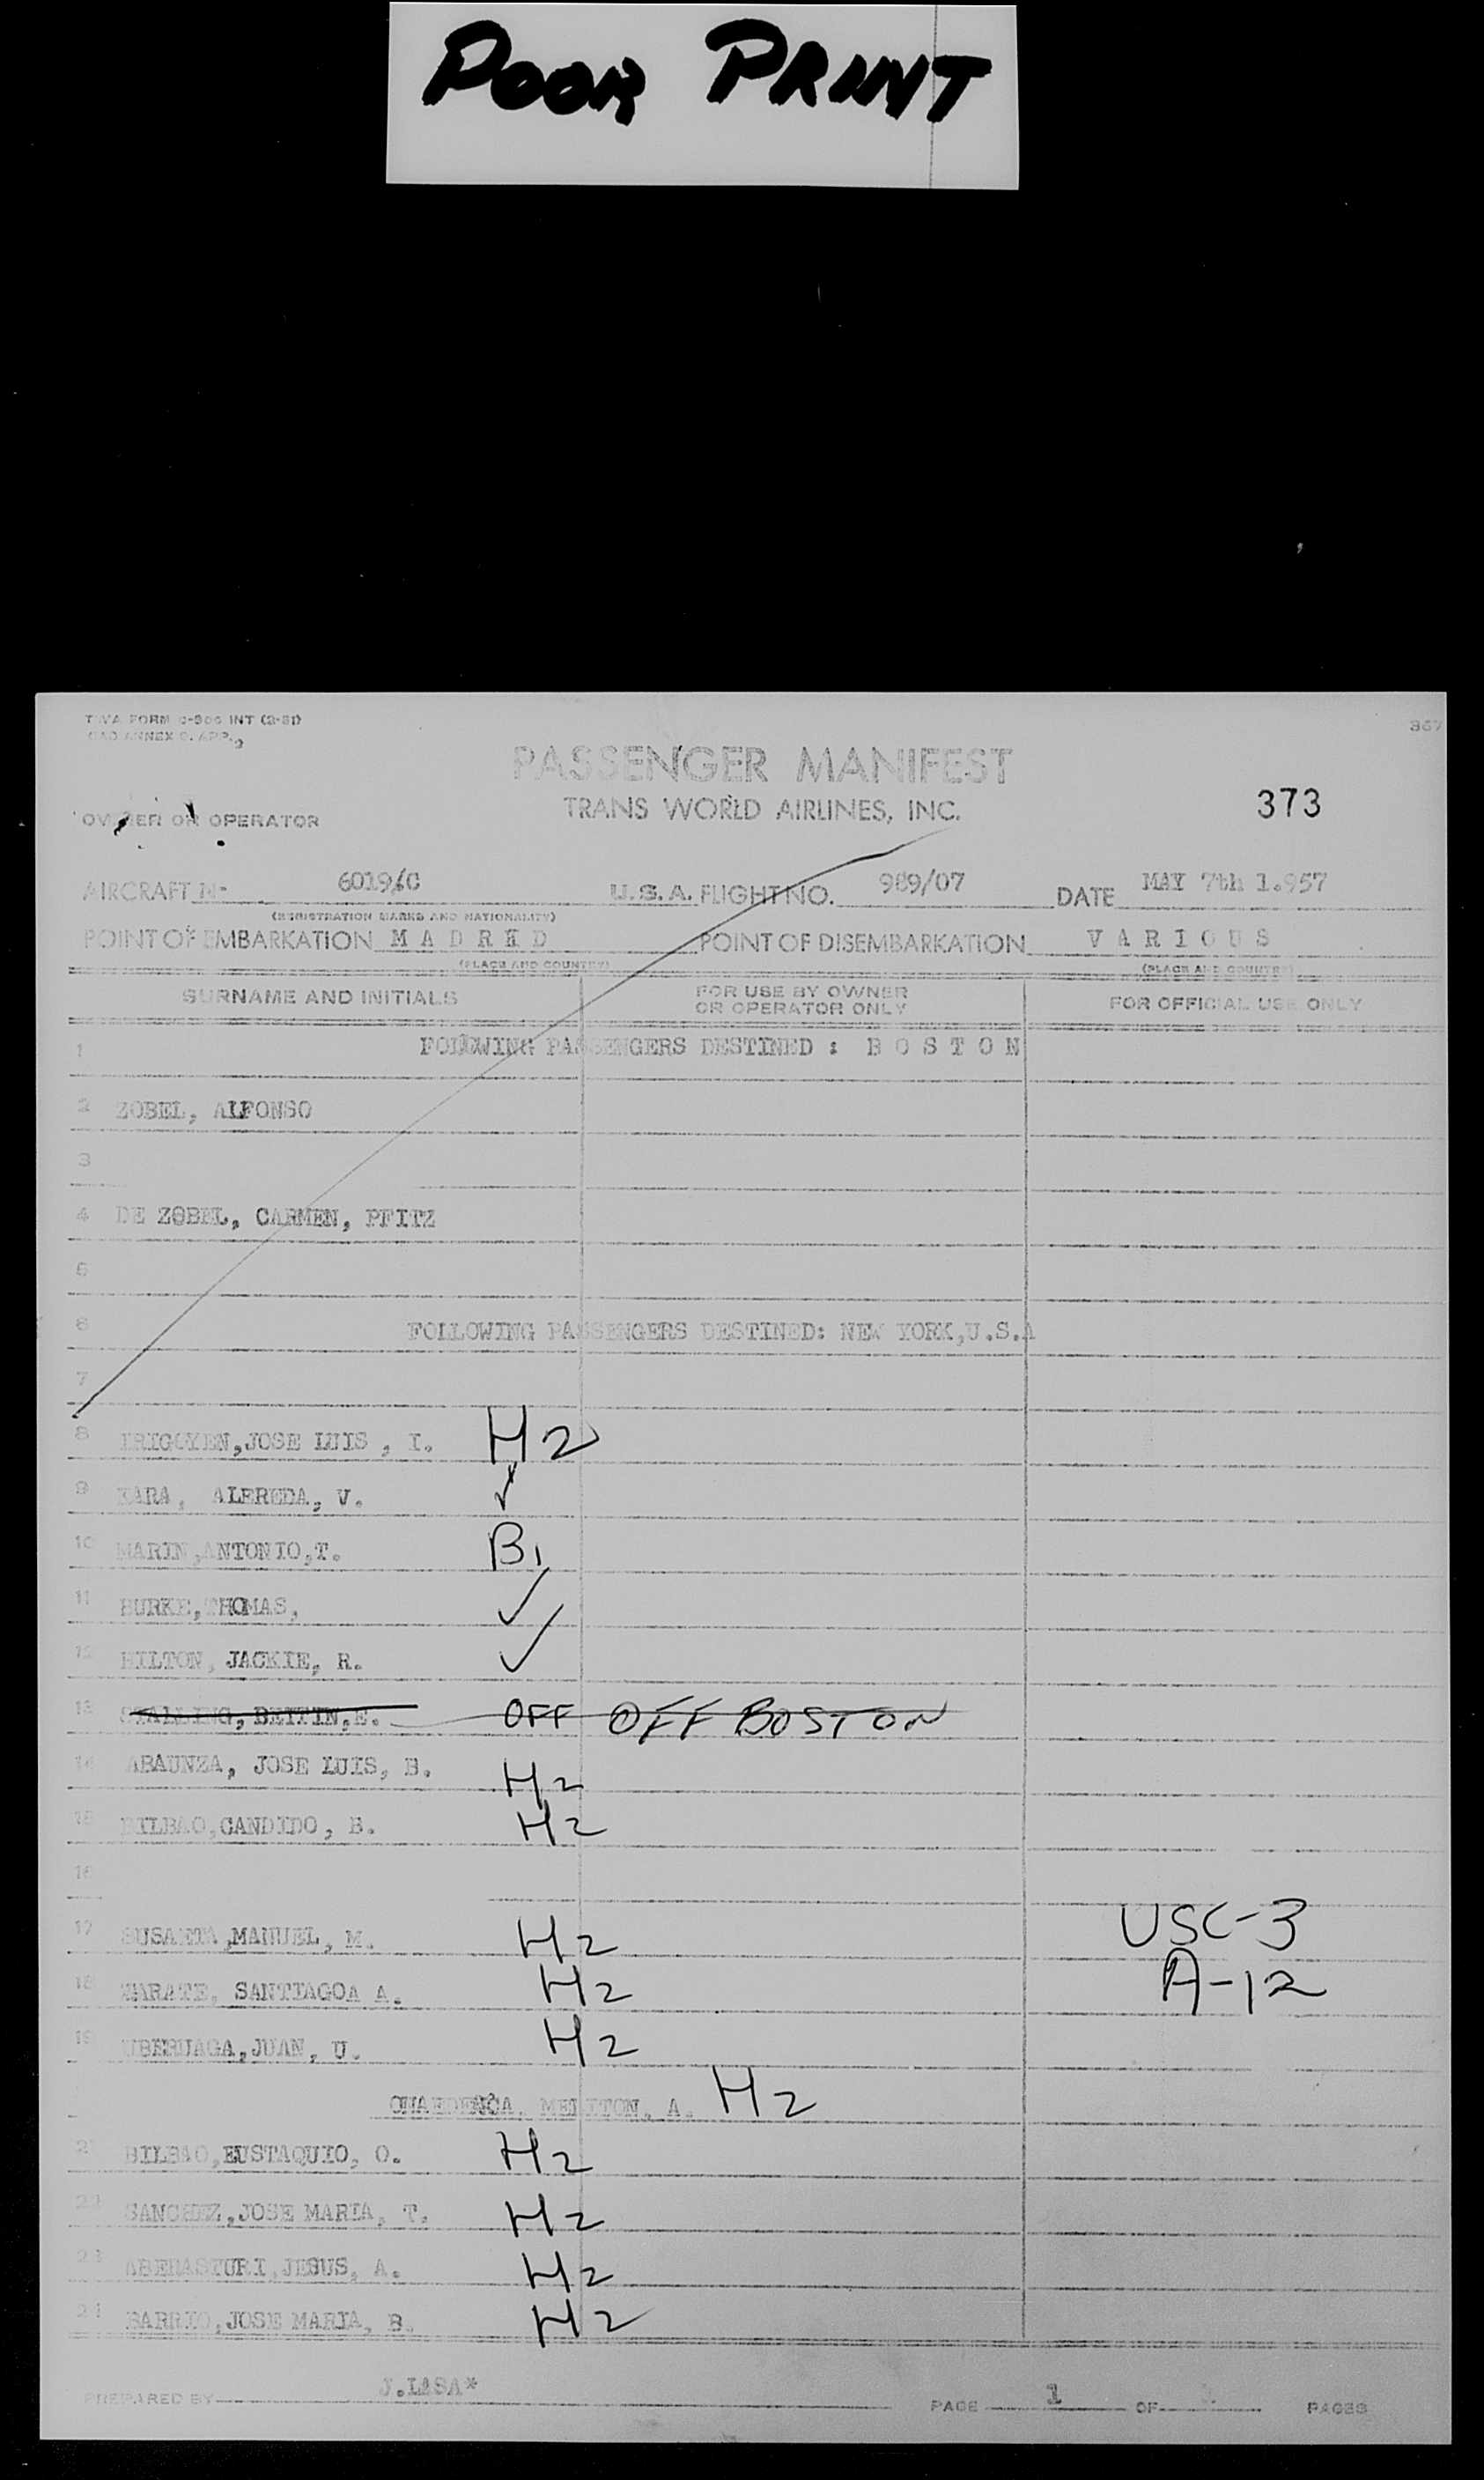 POOR PRINT
TWA FORM
INT
367
PASSENGER MANIFEST
TRANS WORLD AIRLINES, INC.
373
OWNER OR OPERATOR
AIRCRAFT N- U.S.A. FLIGHT NO. 989/07 DATE MAY 7th 1.957
(REGISTRATION MARKS AND NATIONALITY)
POINT OF EMBARKATION M A D R I D POINT OF DISEMBARKATION V A R I O U S
(PLACE AND COUNTRY) (PLACE AND COUNTRY)
SURNAME AND INITIALS FOR USE BY OWNER OR OPERATOR ONLY FOR OFFICIAL USE ONLY
1 FOLLOWING PASSENGERS DESTINED : B O S T O N
2 ZOBEL, ALFONSO
3
4 DE ZOBEL, CARMEN, PFITZ
5
6 FOLLOWING PASSENGERS DESTINED: NEW YORK,U.S.A
7
8 IRIGOYEN,JOSE LUIS , I. H2
9 KARA, ALFREDA, V. ✓
10 MARIN,ANTONIO,T. B1
11 BURKE,THOMAS, ✓
12 HILTON, JACKIE, R. ✓
13 E. OFF OFF BOSTON
14 ABAUNZA, JOSE LUIS, B. H2
15 BILBAO,CANDIDO, B. H2
16
17 MANUEL, M. H2 USC-3
18 ZARATE, SANTIAGOA A. H2 A-12
19 UBERUAGA,JUAN, U. H2
MELITON, A. H2
21 BILBAO,EUSTAQUIO, O. H2
22 SANCHEZ,JOSE MARIA, T. H2
23 ABERASTURI,JESUS, A. H2
24 BARRIO,JOSE MARIA, B. H2
PREPARED BY J.LASA* PAGE 1 OF PAGES